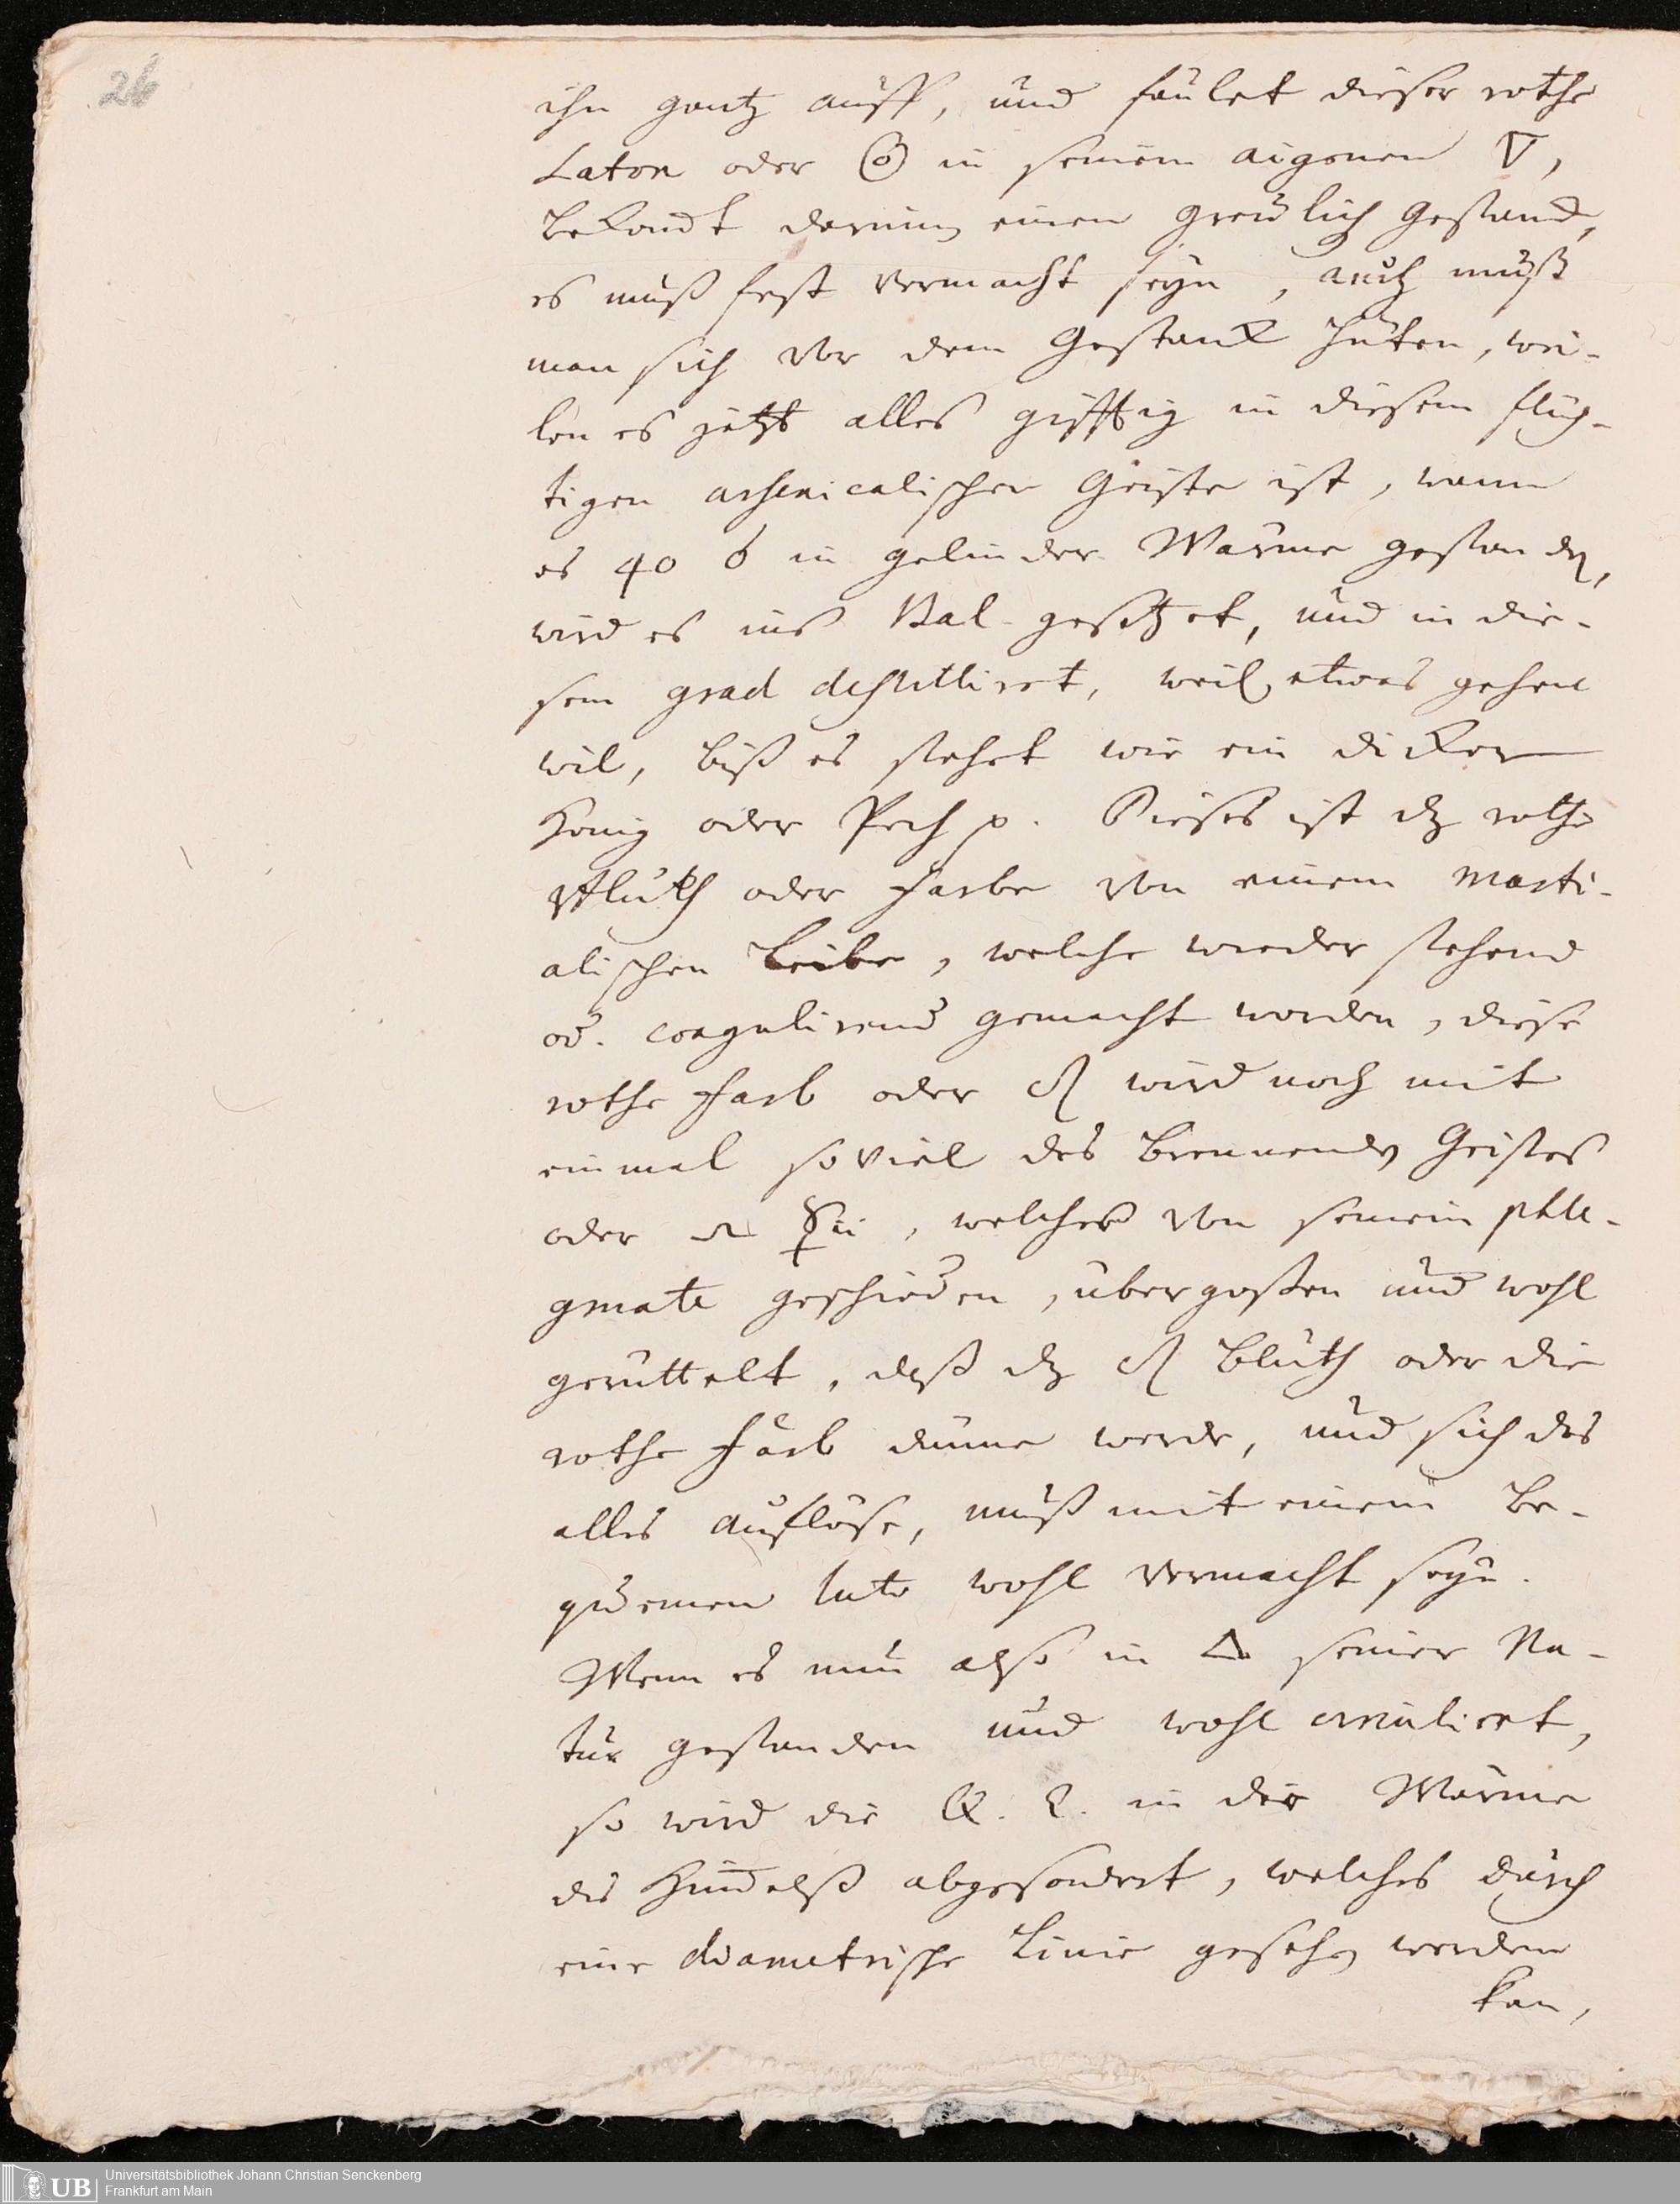 26
ihn gantz auff, und faulet dieser rothe
Laton oder in seinem aigenen 🜄,
bekomt darum einen greulich Gestanck,
es muß fest vermacht seyn, auch muß
man sich vor dem Gestanck hüten, wei-
len es jetzt alles gifftig in diesem flüch-
tigen arsenicalischen Geiste ist, wann
es 40 in gelinder Wärme gestanden,
wird es ins Bal. gesetzet, und in die-
sem grad destilliret, weil etwas gehen
wil, biß es stehet wie ein dicker
Honig oder Pech p. Dieses ist dz rothe
Bluth oder Farbe von einem marti-
alischen Leibe, welche wieder stehend
od. coagulirend gemacht worden, diese
rothe Farb oder wird noch mit
einmal so viel des brennenden Geistes
oder ☿ii, welcher von seinem phle-
gmate geschieden, übergoßen und wohl
gerüttelt, daß dz Bluth oder die
rothe Farb dünne werde, und sich des
alles auflöse, muß mit einem be-
quemen luto wohl vermacht seyn.
Wenn es nun also in seiner Na-
tur gestanden und wohl circuliret,
so wird die Q. E. in der Wärme
des abgesondert, welches durch
eine diametrische Linie gesehen werden
kan,
UB
Universitätsbibliothek Johann Christian Senckenberg
Frankfurt am Main